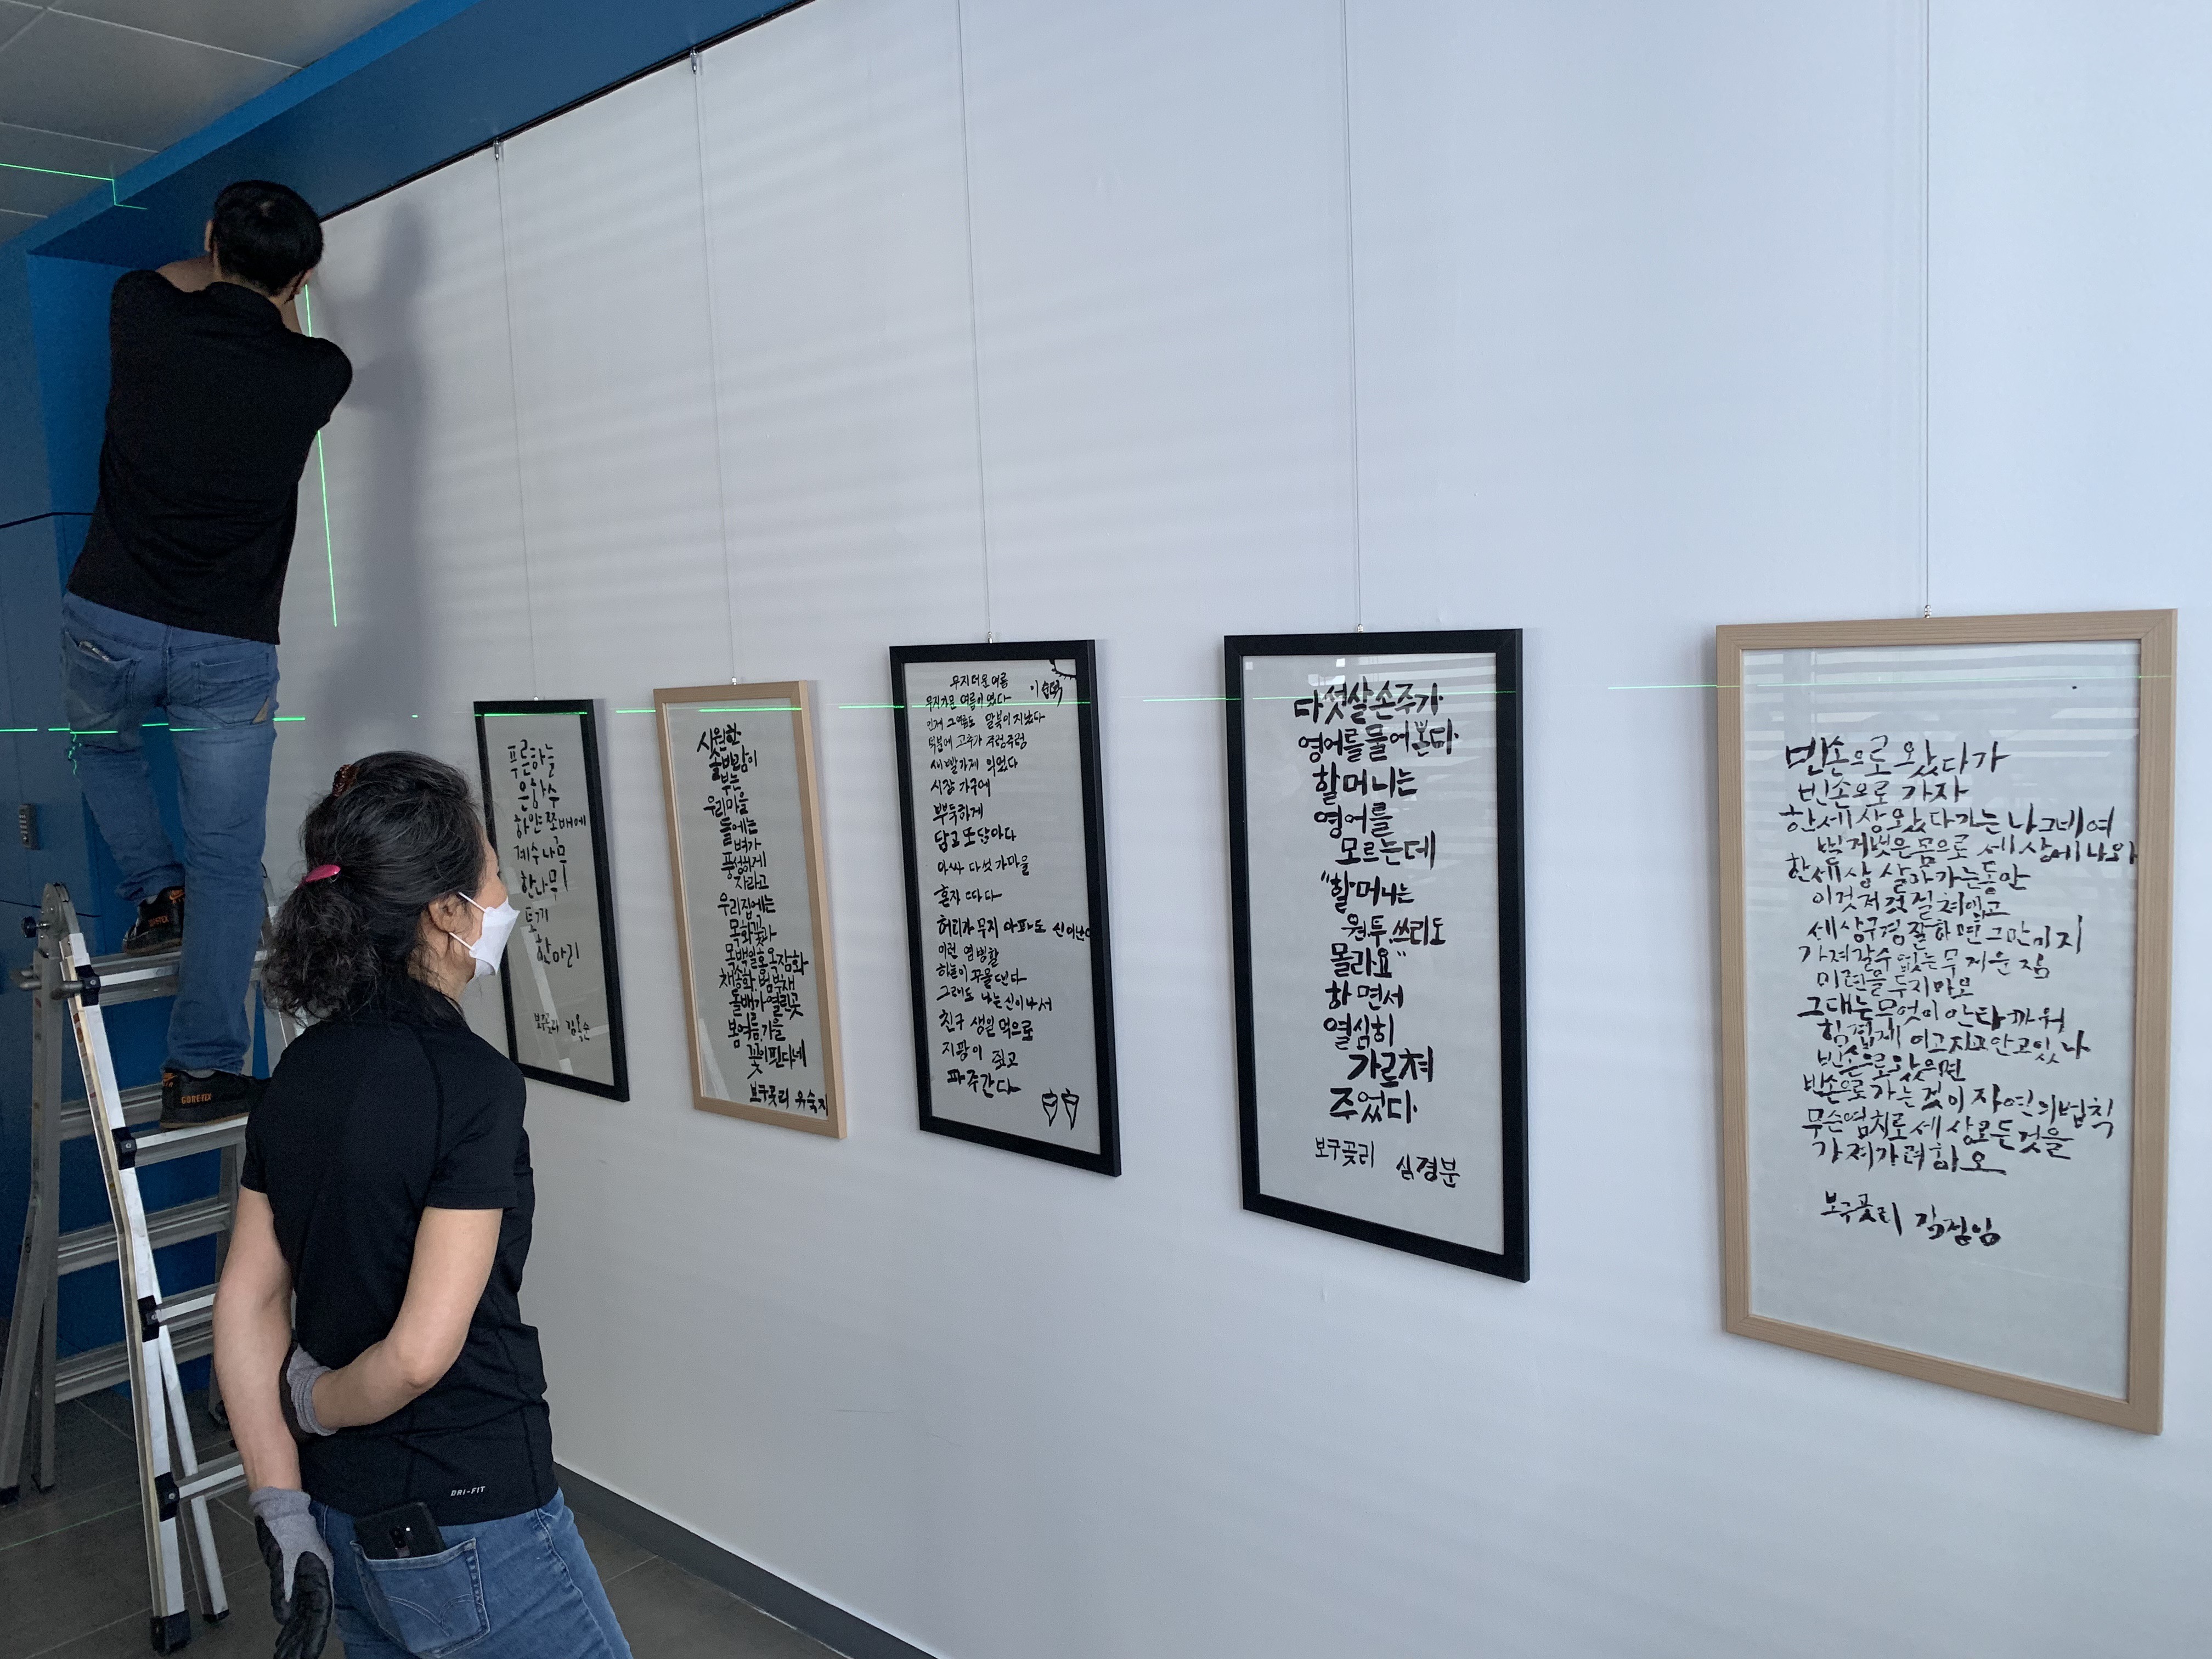 푸른하늘
은하수
하얀쪽배에
계수나무
한나무
토끼
한마리
보구곶리 김옥순
시원한
솔바람이
부는
우리마을
들에는
벼가
풍성하게
자라고
우리집에는
목화꽃과
목백일홍 옥잠화
채송화, 범부채
돌배가 열린곳
봄여름가을
꽃이핀다네
보구곶리 유숙자
무지더운여름
무지가운 여름이 었다
인제 그여름도 말복이 지났다
덕분에 고추가 주렁주렁
새빨가게 익었다
시장 가구에
뿌듯하게
담고 또 담아다
아싸 다섯 가마을
혼자 따다
허리가 무지 아파도 신이난다
이런 염병할
하늘이 꾸물댄다
그래도 나는 신이나서
친구 생일 먹으로
지팡이 짚고
파주간다
다섯살손주가
영어를 물어본다.
할머니는
영어를
모르는데
"할머니는
원, 투, 쓰리도
몰라요"
하면서
열심히
가르쳐
주었다.
보구곶리 심경분
빈손으로 왔다가
빈손으로 가자
한세상왔다가는 나그네여
벌거벗은몸으로 세상에나와
한세상 살아가는동안
이것저것 걸쳐입고
세상구경 잘하면 그만이지
가져갈수 없는 무거운 짐
미련을 두지마오
그대는 무엇이 안타까워
힘겹게 이고지고안고있나
빈손으로 왔으면
빈손으로 가는 것이 자연의 법칙
무슨염치로 세상모든것을
가져가려하오
보구곶리 김정임
DRI-FIT
GORE-TEX